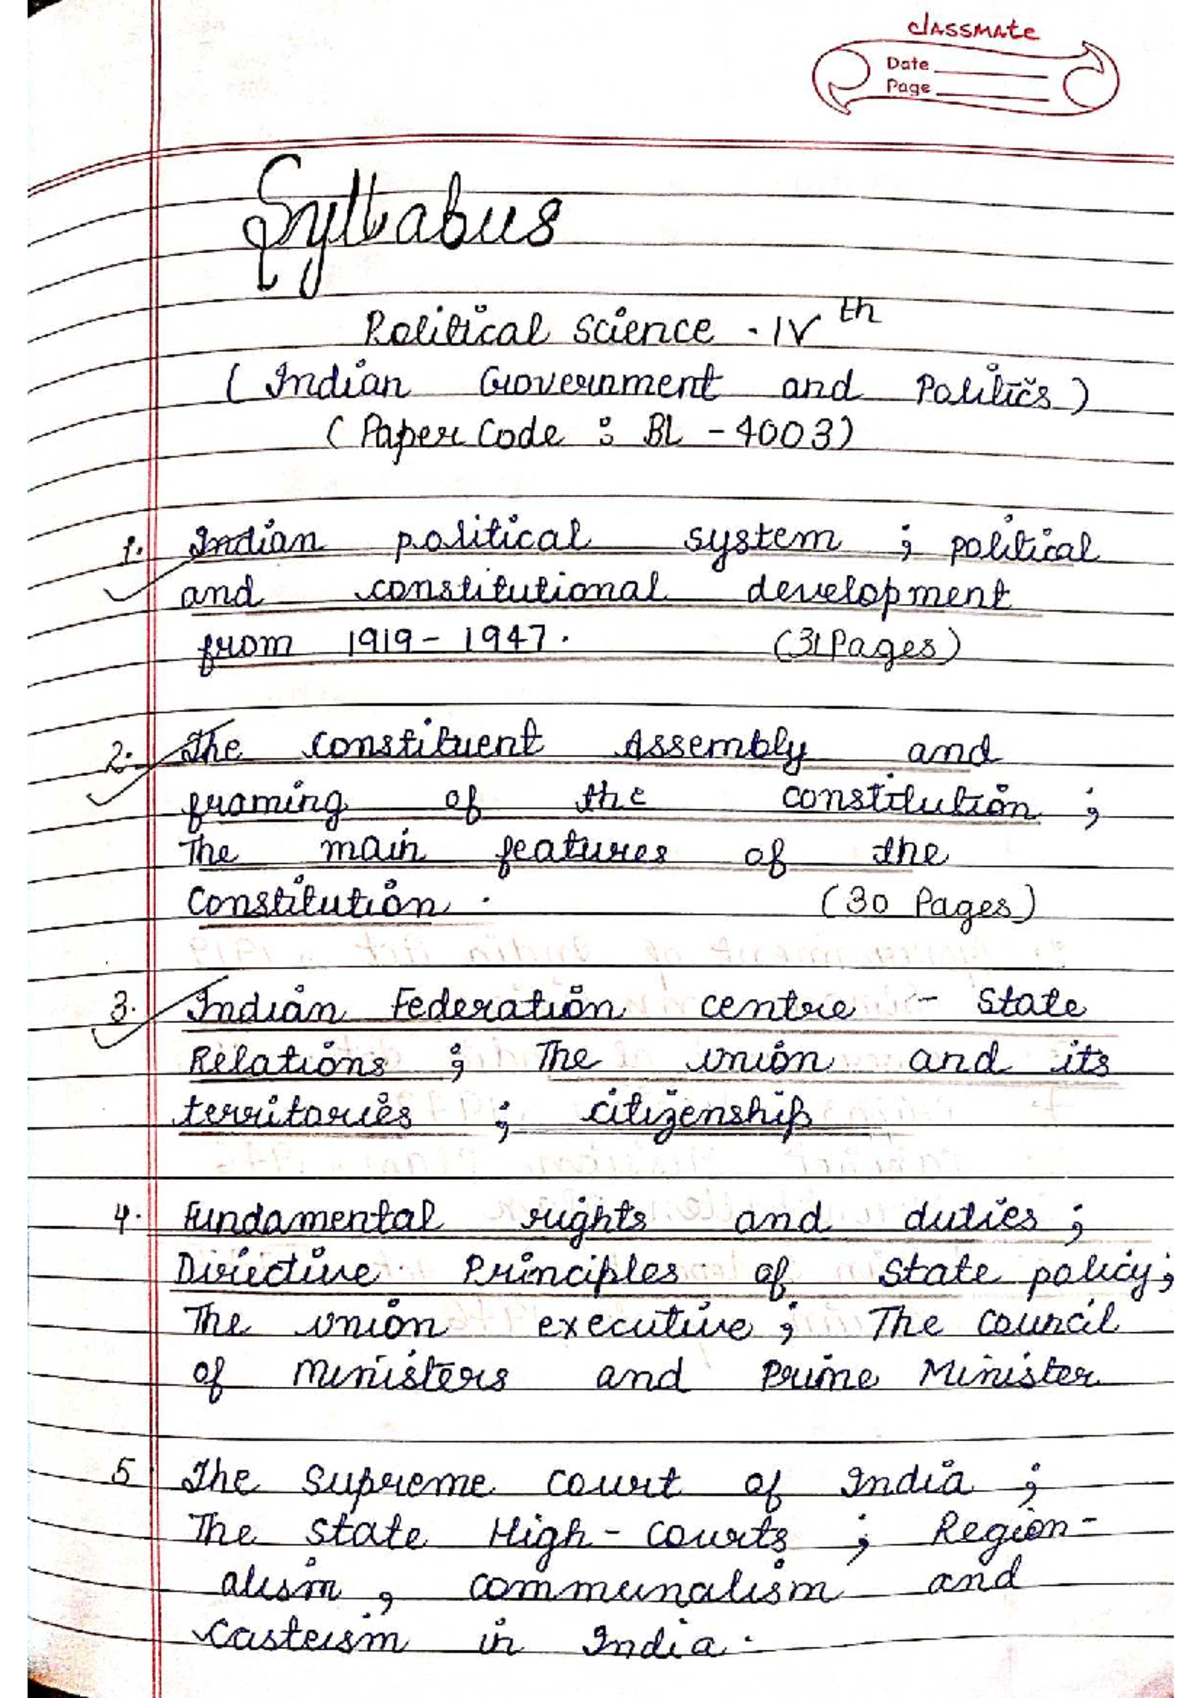 classmate
Date
Page
Syllabus
Political Science - IVth
(Indian Government and Politics)
(Paper Code : BL - 4003)
1. Indian political system ; political
and constitutional development
from 1919 - 1947. (31 Pages)
2. The constituent Assembly and
framing of the constitution ;
The main features of the
Constitution. (30 Pages)
3. Indian Federation centre - State
Relations ; The union and its
territories ; citizenship
4. Fundamental rights and duties ;
Directive Principles of State policy ;
The union executive ; The council
of ministers and Prime Minister
5 The Supreme Court of India ;
The State High - Courts ; Region-
alism , communalism and
Casteism in India.